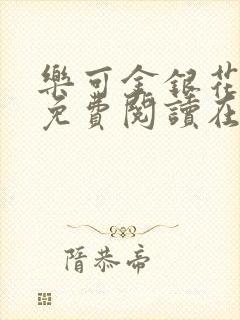 樂可金銀花
免費閱讀在
隋恭帝